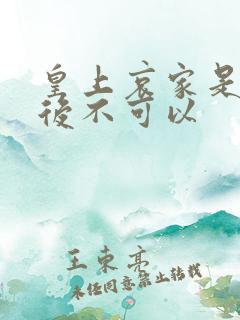 皇上哀家是太
後不可以
王東亮
未经同意禁止转载